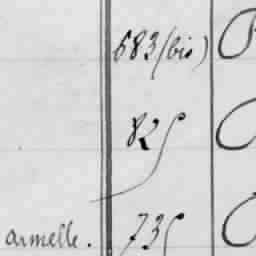 683 (bis)
825
armelle. 735